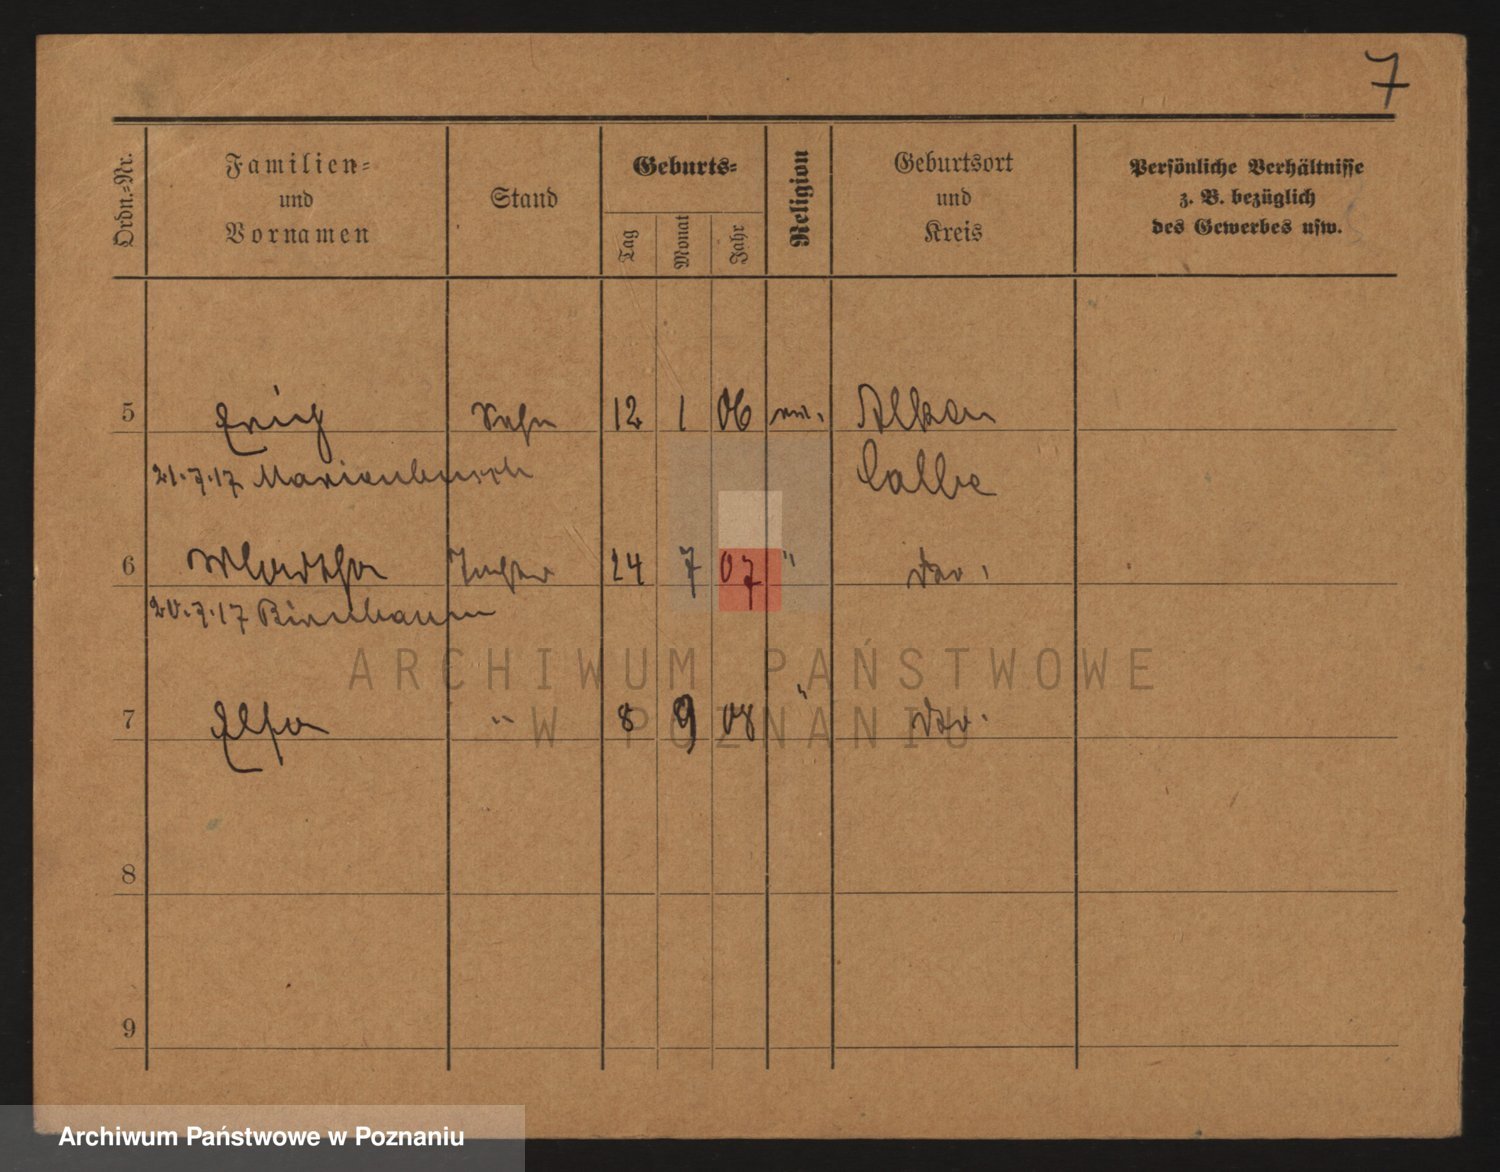 7
Ordn.-Nr.
Familien-
und
Vornamen
Stand
Geburts-
Tag
Monat
Jahr
Religion
Geburtsort
und
Kreis
Persönliche Verhältnisse
z. B. bezüglich
des Gewerbes usw.
5 Erich Sohn 12 1 06 Alken
21.7.17 Calbe
6 24 7 07 " Do.
20.7.17 Birnbaum
ARCHIWUM PAŃSTWOWE
7 Elsa " 8 9 08 " Do.
W POZNANIU
8
9
Archiwum Państwowe w Poznaniu